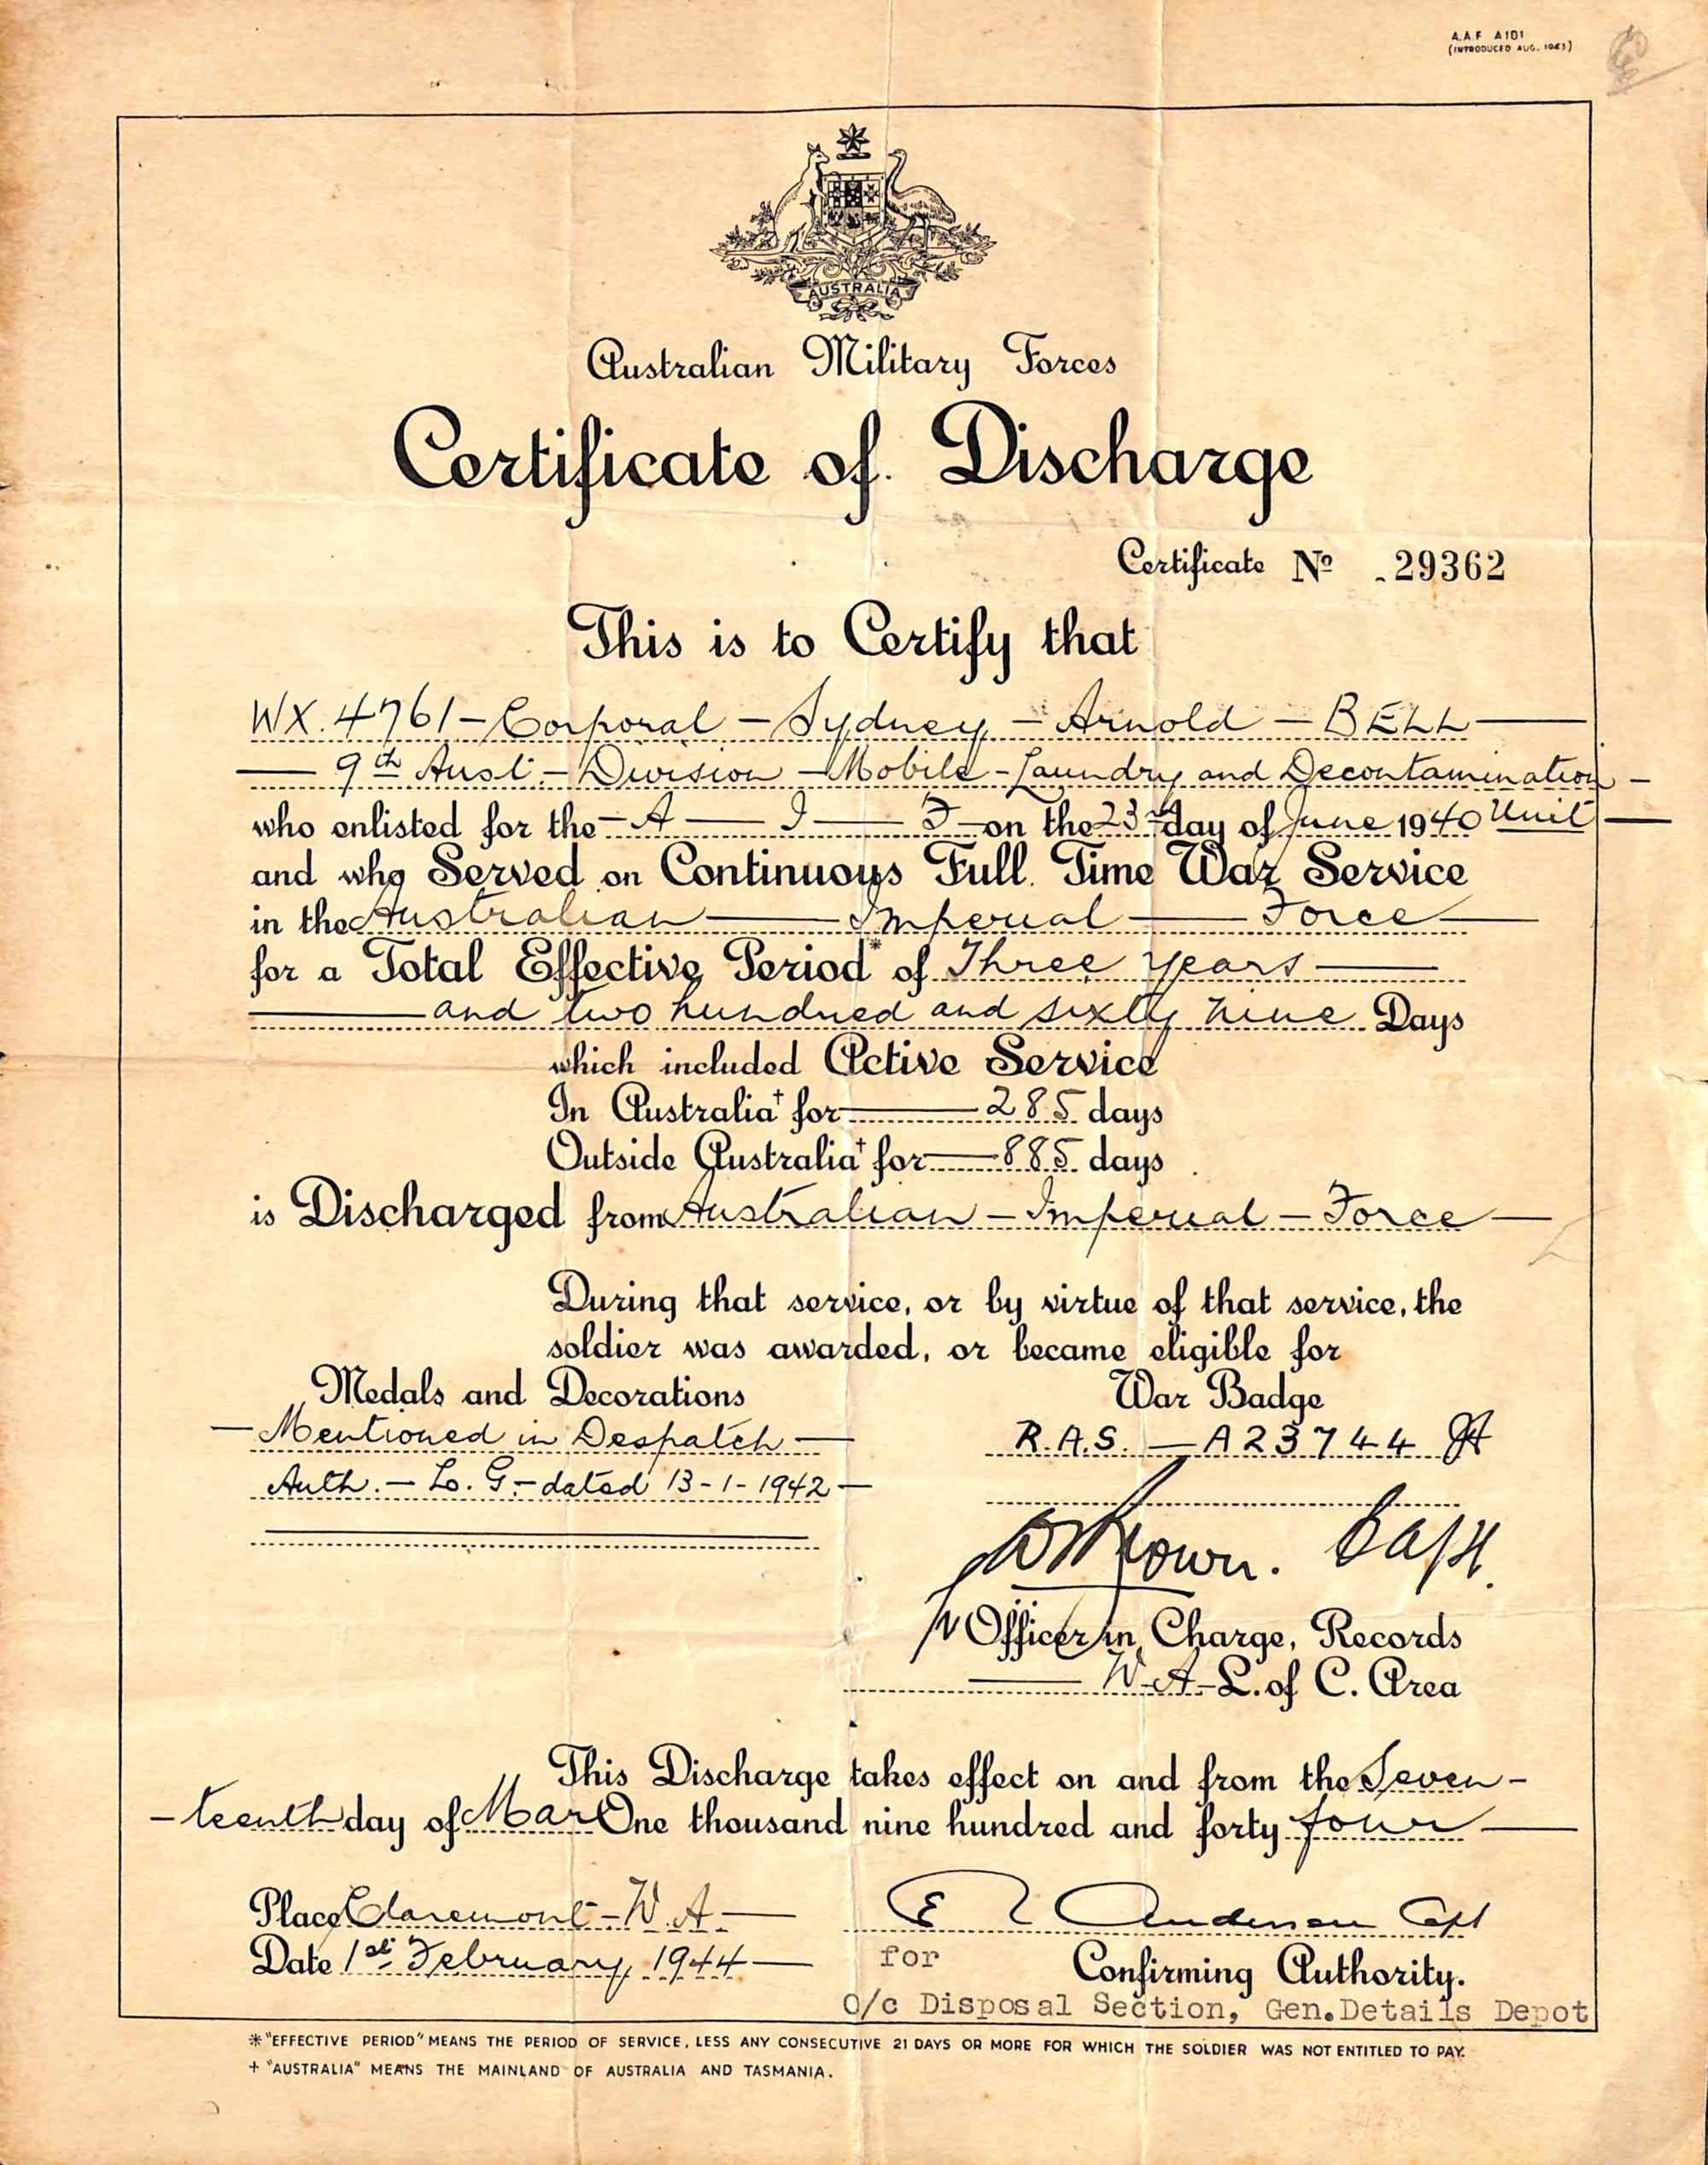 A.A.F. A101
(INTRODUCED AUG. 1943)
AUSTRALIA
Australian Military Forces
Certificate of Discharge
Certificate No 29362
This is to Certify that
WX.4761 - Corporal - Sydney - Arnold - BELL
9th Aust. - Division - Mobile - Laundry and Decontamination -
who enlisted for the - A - I - F - on the 23rd day of June 1940 Unit
and who Served on Continuous Full Time War Service
in the Australian Imperial Force
for a Total Effective Period* of Three Years
and two hundred and sixty nine Days
which included Active Service
In Australia† for 285 days
Outside Australia† for 885 days
is Discharged from Australian - Imperial - Force
During that service, or by virtue of that service, the
soldier was awarded, or became eligible for
Medals and Decorations War Badge
- Mentioned in Despatch - R.A.S. - A23744
Auth. - Lo. G. - dated 13-1-1942 -
Capt.
Officer in Charge, Records
W.A. L. of C. Area
This Discharge takes effect on and from the Seven-
-teenth day of Mar One thousand nine hundred and forty four
Place Claremont - W.A. E Anderson Capt
Date 1st February, 1944 for Confirming Authority.
O/c Disposal Section, Gen.Details Depot
* "EFFECTIVE PERIOD" MEANS THE PERIOD OF SERVICE, LESS ANY CONSECUTIVE 21 DAYS OR MORE FOR WHICH THE SOLDIER WAS NOT ENTITLED TO PAY.
+ "AUSTRALIA" MEANS THE MAINLAND OF AUSTRALIA AND TASMANIA.